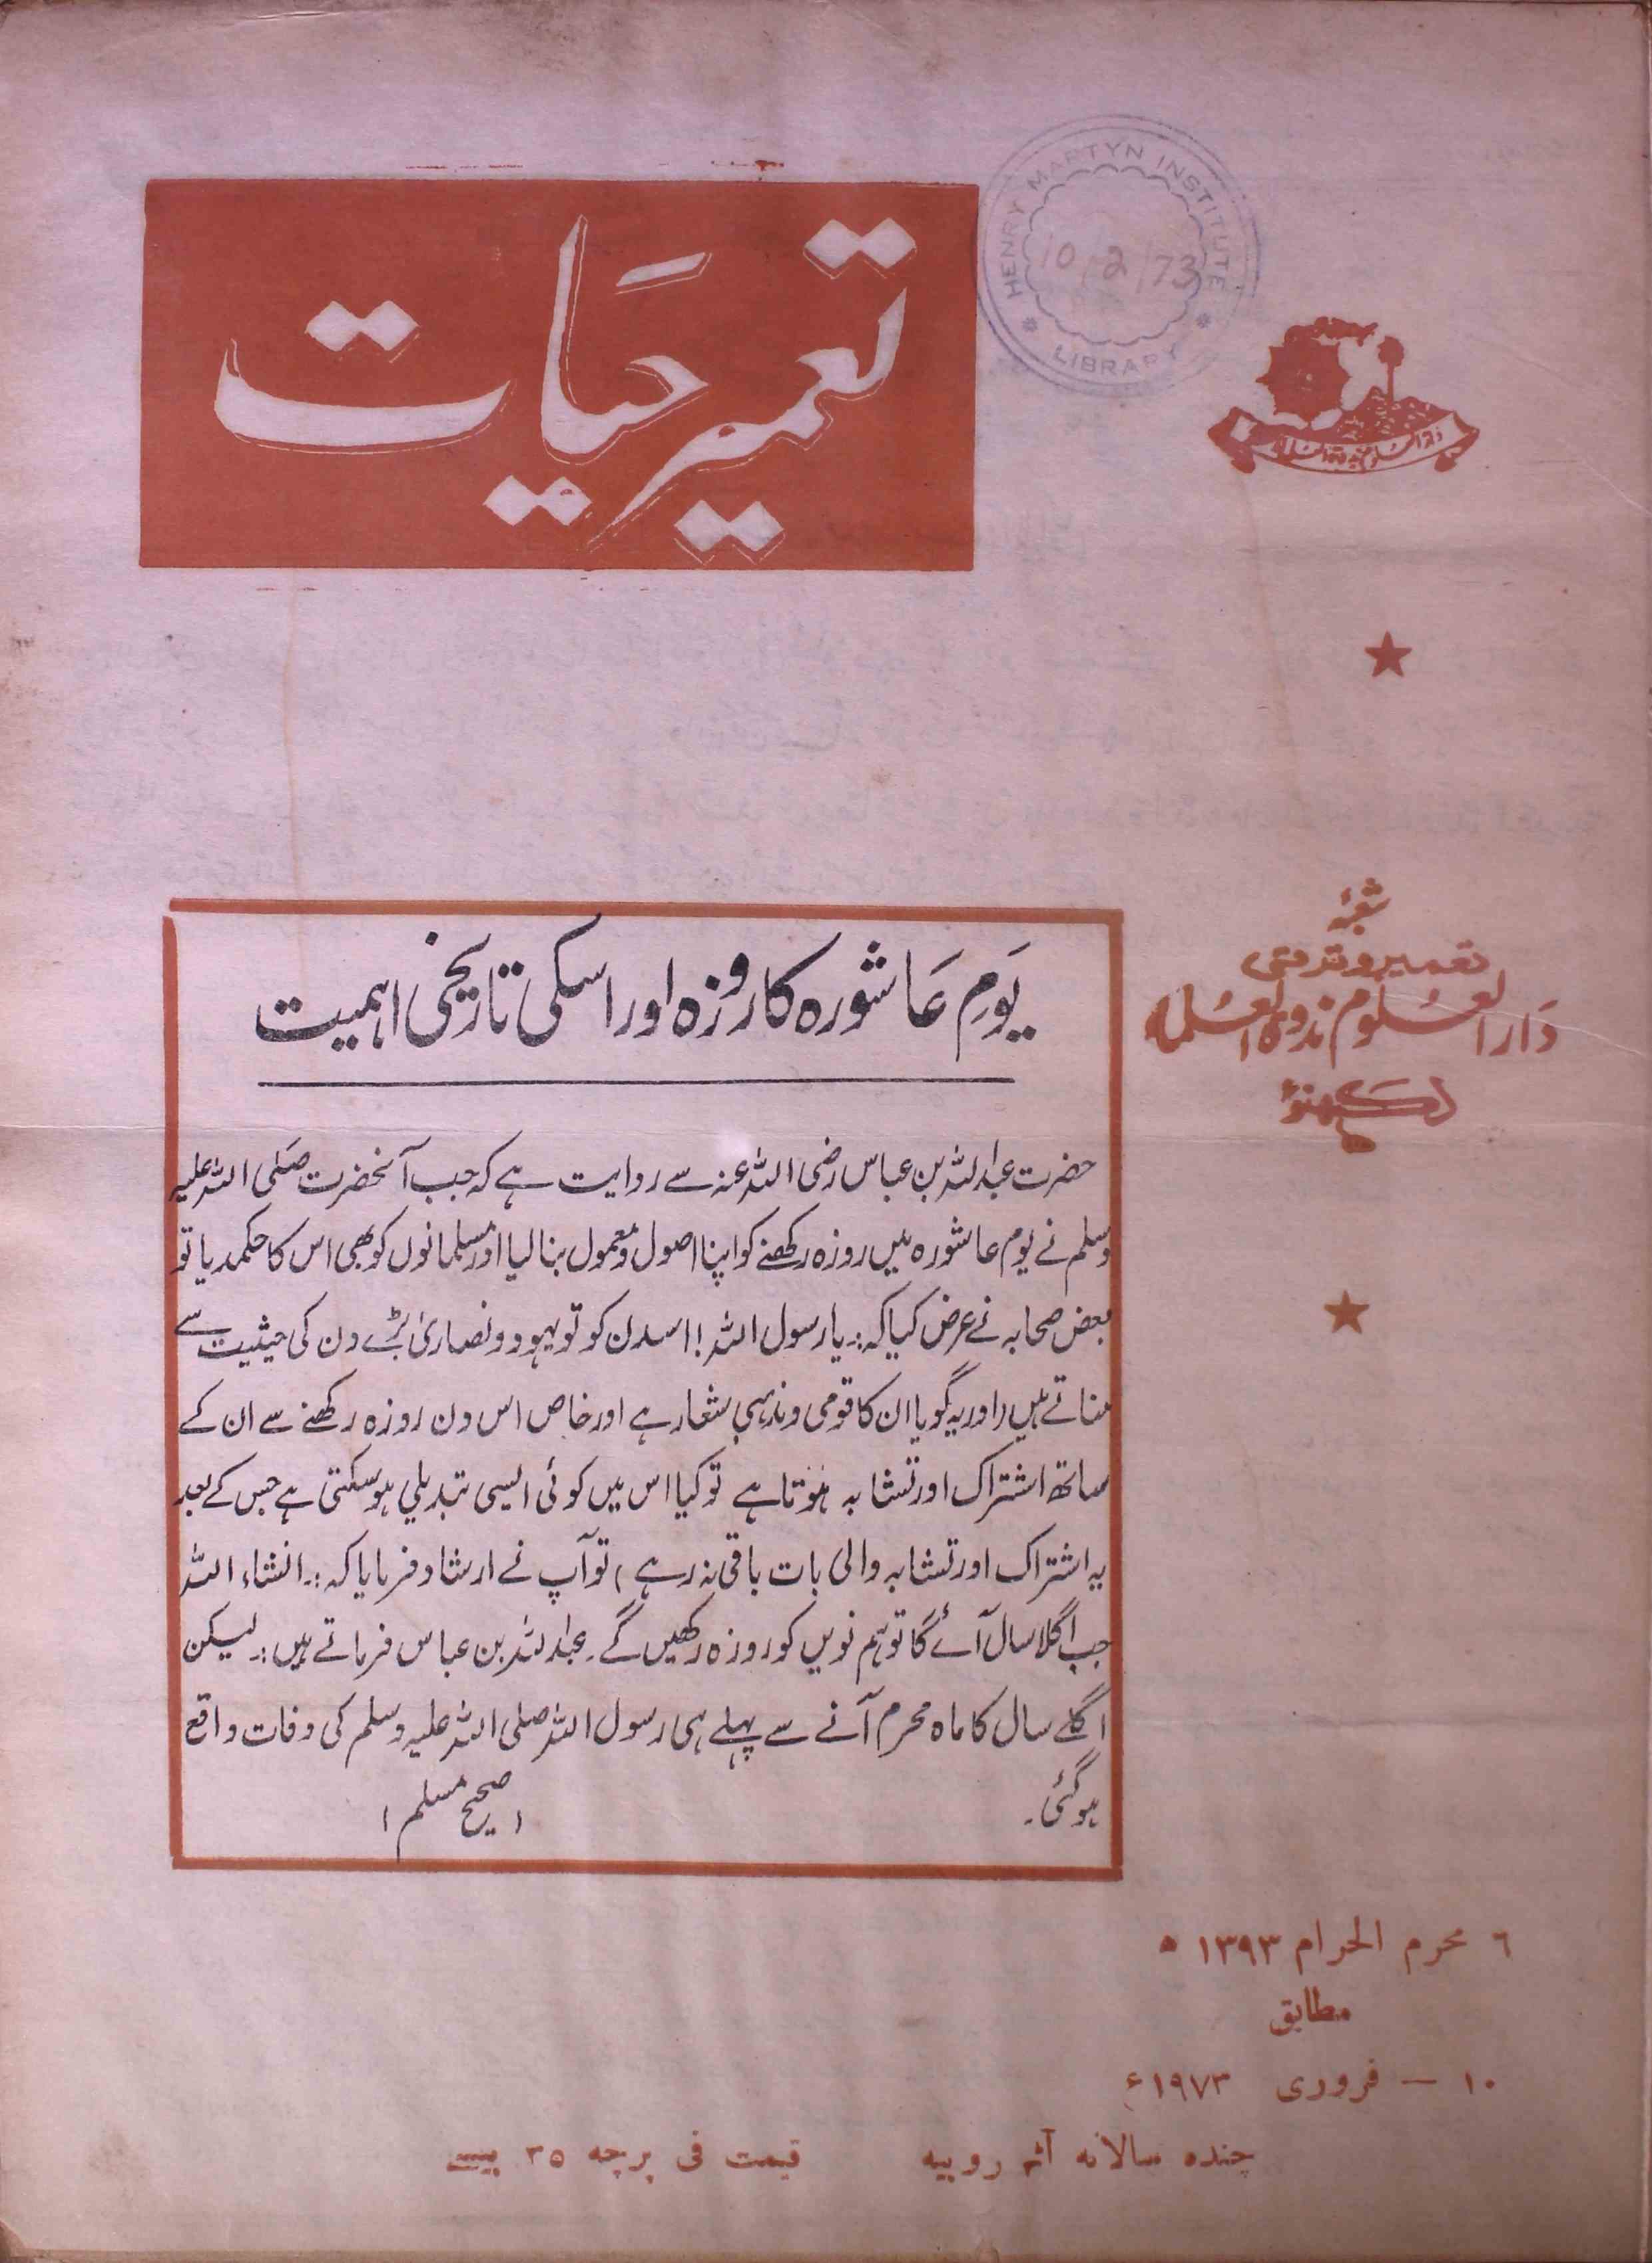 تعمیر حیات
HENRY MARTYN INSTITUTE
10/2/73
LIBRARY
شعبۂ
تعمیر و ترقی
دَارالعلوم ندوۃ العلماء
لکھنؤ
یَومِ عَاشورہ کا روزہ اور اسکی تاریخی اہمیت
حضرت عبداللہ بن عباس رضی اللہ عنہ سے روایت ہے کہ جب آنحضرت صَلی اللہ علیہ
وسلم نے یوم عاشورہ میں روزہ رکھنے کو اپنا اصول و معمول بنا لیا اور مسلمانوں کو بھی اس کا حکم دیا تو
بعض صحابہ نے عرض کیا کہ:۔ یا رسول اللہ! اسدن کو تو یہود و نصاریٰ بڑے دن کی حیثیت سے
مناتے ہیں (اور یہ گویا ان کا قومی و مذہبی شعار ہے اور خاص اس دن روزہ رکھنے سے ان کے
ساتھ اشتراک اور تشابہ ہوتا ہے تو کیا اس میں کوئی ایسی تبدیلی ہو سکتی ہے جس کے بعد
یہ اشتراک اور تشابہ والی بات باقی نہ رہے) تو آپ نے ارشاد فرمایا کہ:۔ انشاء اللہ
جب اگلا سال آئے گا تو ہم نویں کو روزہ رکھیں گے۔ عبداللہ بن عباس فرماتے ہیں:۔ لیکن
اگلے سال کا ماہ محرم آنے سے پہلے ہی رسول اللہ صلی اللہ علیہ وسلم کی وفات واقع
ہو گئی۔ (صحیح مسلم)
٦ محرم الحرام ١٣٩٣ ھ
مطابق
١٠ – فروری ١٩٧٣ء
چندہ سالانہ آٹھ روپیہ قیمت فی پرچہ ٣٥ پیسے